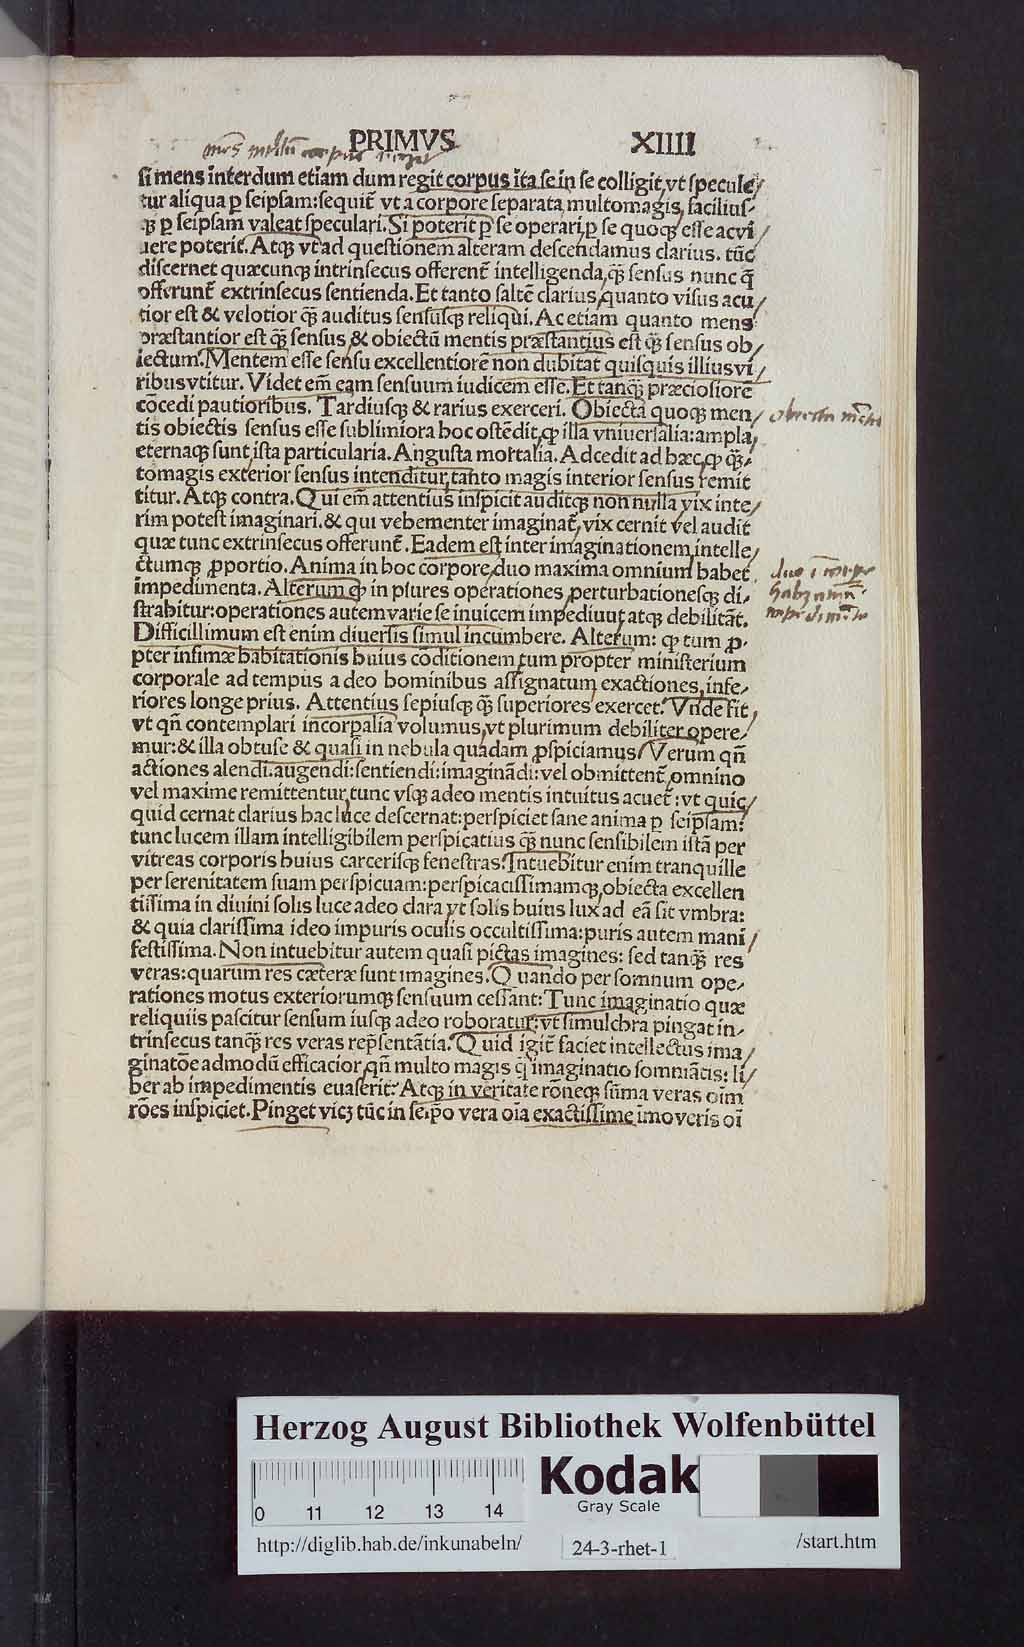 PRIMVS XIIII
si mens interdum etiam dum regit corpus ita se in se colligit, vt specule/
tur aliqua ꝑ seipsam: sequit̃ vt a corpore separata multomagis, facilius-
qꝫ ꝑ seipsam valeat speculari. Si poterit ꝑ se operari, ꝑ se quoqꝫ esse ac vi/
uere poterit. Atqꝫ vt ad questionem alteram descendamus clarius. tũc
discernet quæcunqꝫ intrinsecus offerent̃ intelligenda, qꝫ̃ sensus nunc q̃
offerunt̃ extrinsecus sentienda. Et tanto saltẽ clarius, quanto visus acu/
tior est & velotior qꝫ̃ auditus sensusqꝫ reliqui. Ac etiam quanto mens
præstantior est qꝫ̃ sensus, & obiectũ mentis præstantius est qꝫ̃ sensus ob/
iectum. Mentem esse sensu excellentiorẽ non dubitat quisquis illius vi/
ribus vtitur. Videt em̃ eam sensuum iudicem esse. Et tanqꝫ̃ præciosiorẽ
cõcedi pautioribus. Tardiusqꝫ & rarius exerceri. Obiecta quoqꝫ men/
tis obiectis sensus esse sublimiora hoc ostẽdit, ꝙ illa vniuersalia: ampla,
eternaqꝫ sunt, ista particularia. Angusta mortalia. Adcedit ad hæc, ꝙ qꝫ̃-
tomagis exterior sensus intenditur, tanto magis interior sensus remit
titur. Atqꝫ contra. Qui em̃ attentius inspicit auditqꝫ non nulla vix inte/
rim potest imaginari. & qui vehementer imaginat̃, vix cernit vel audit
quæ tunc extrinsecus offerunt̃. Eadem est inter imaginationem, intelle/
ctumqꝫ ꝓportio. Anima in hoc corpore, duo maxima omnium habet
impedimenta. Alterum ꝙ in plures operationes, perturbationesqꝫ di-
strahitur: operationes autem varie se inuicem impediuut atqꝫ debilitãt.
Difficillimum est enim diuersis simul incumbere. Alterum: ꝙ tum ꝓ-
pter infimæ habitationis huius cõditionem, tum propter ministerium
corporale ad tempus a deo hominibus assignatum, exactiones, infe-
riores longe prius. Attentius sepiusqꝫ qꝫ̃ superiores exercet. Vnde fit,
vt qñ contemplari incorpalia volumus, vt plurimum debiliter opere/
mur: & illa obtuse & quasi in nebula quadam ꝓspiciamus. Verum qñ
actiones alendi. augendi: sentiendi: imaginãdi: vel obmittent̃, omnino
vel maxime remittentur, tunc vsqꝫ adeo mentis intuitus acuet̃: vt quic/
quid cernat clarius hac luce descernat: perspiciet sane anima ꝑ seipsam:
tunc lucem illam intelligibilem perspicatius qꝫ̃ nunc sensibilem istã per
vitreas corporis huius carcerisqꝫ fenestras. Intuebitur enim tranquille
per serenitatem suam perspicuam: perspicacissimamqꝫ, obiecta excellen
tissima in diuini solis luce adeo clara vt solis huius lux, ad eã sit vmbra:
& quia clarissima ideo impuris oculis occultissima: puris autem mani/
festissima. Non intuebitur autem quasi pictas imagines: sed tanqꝫ̃ res
veras: quarum res cæteræ sunt imagines. Quando per somnum ope-
rationes motus exteriorumqꝫ sensuum cessant: Tunc imaginatio quæ
reliquiis pascitur sensum iusqꝫ adeo roboratur: vt simulchra pingat in-
trinsecus tanqꝫ̃ res veras rep̃sentãtia. Quid igit̃ faciet intellectus ima/
ginatõe admodũ efficacior, qñ multo magis q̃ imaginatio somniãtis: li/
ber ab impedimentis euaserit. Atqꝫ in veritate rõneqꝫ sũma veras oĩm
rões inspiciet. Pinget vicꝫ tũc in seip̃o vera oĩa exactissime imo veris oĩ
obiecta mẽtis
duo ĩ corpe
habz aĩa
impedimẽta
Herzog August Bibliothek Wolfenbüttel
0 11 12 13 14
Kodak
Gray Scale
http://diglib.hab.de/inkunabeln/ 24-3-rhet-1 /start.htm